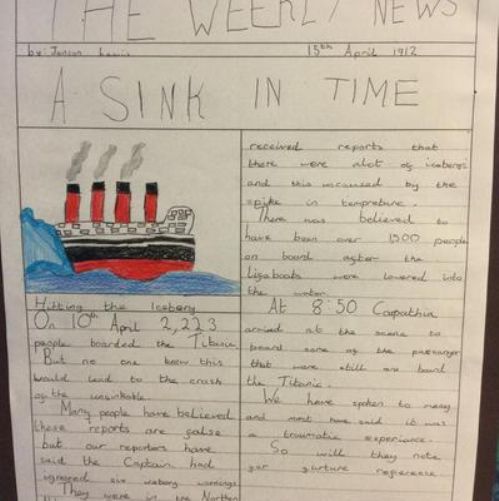 THE WEEKLY NEWS
by: Jenson Lewis
15th April 1912
A SINK IN TIME
Hitting the Iceberg
On 10th April 2,223
people boarded the Titanic
But no one knew this
would lead to the crash
of the unsinkable.
Many people have believed
these reports are false
but our reporters have
said the Captain had
ignored six iceberg warnings
They were in the Northen
received reports that
there were alot of icebergs
and this was caused by the
spike in tempreture.
There was believed to
have been over 1500 people
on board after the
lifeboats were lowered into
the water.
At 8:50 Carpathia
arrived at the scene to
board some of the passenger
that were still on board
the Titanic.
We have spoken to many
and most have said it was
a traumatic experience.
So will they note
for furture reference